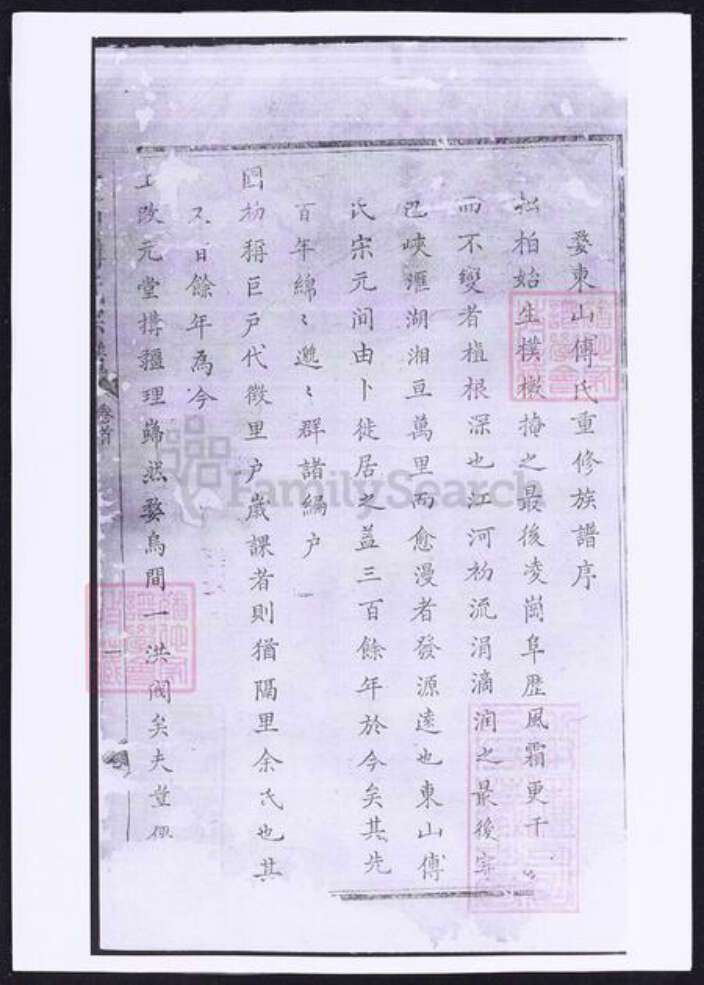 婺東山傅氏重修族譜序
松柏始生樸樕掩之最後凌崗阜歷風霜更千
而不變者植根深也江河初流涓滴润之最後穿
巴峽滙湖湘亘萬里而愈漫者發源遠也東山傅
氏宋元间由卜徙居之盖三百餘年於今矣其先
百年綿〻邈〻群諸編户
國初稱巨户代徵里户嵗課者則猶隔里余氏也其
又百餘年為今
上改元堂搆疆理巋然婺烏間一洪閥矣夫
卷首
一
FamilySearch